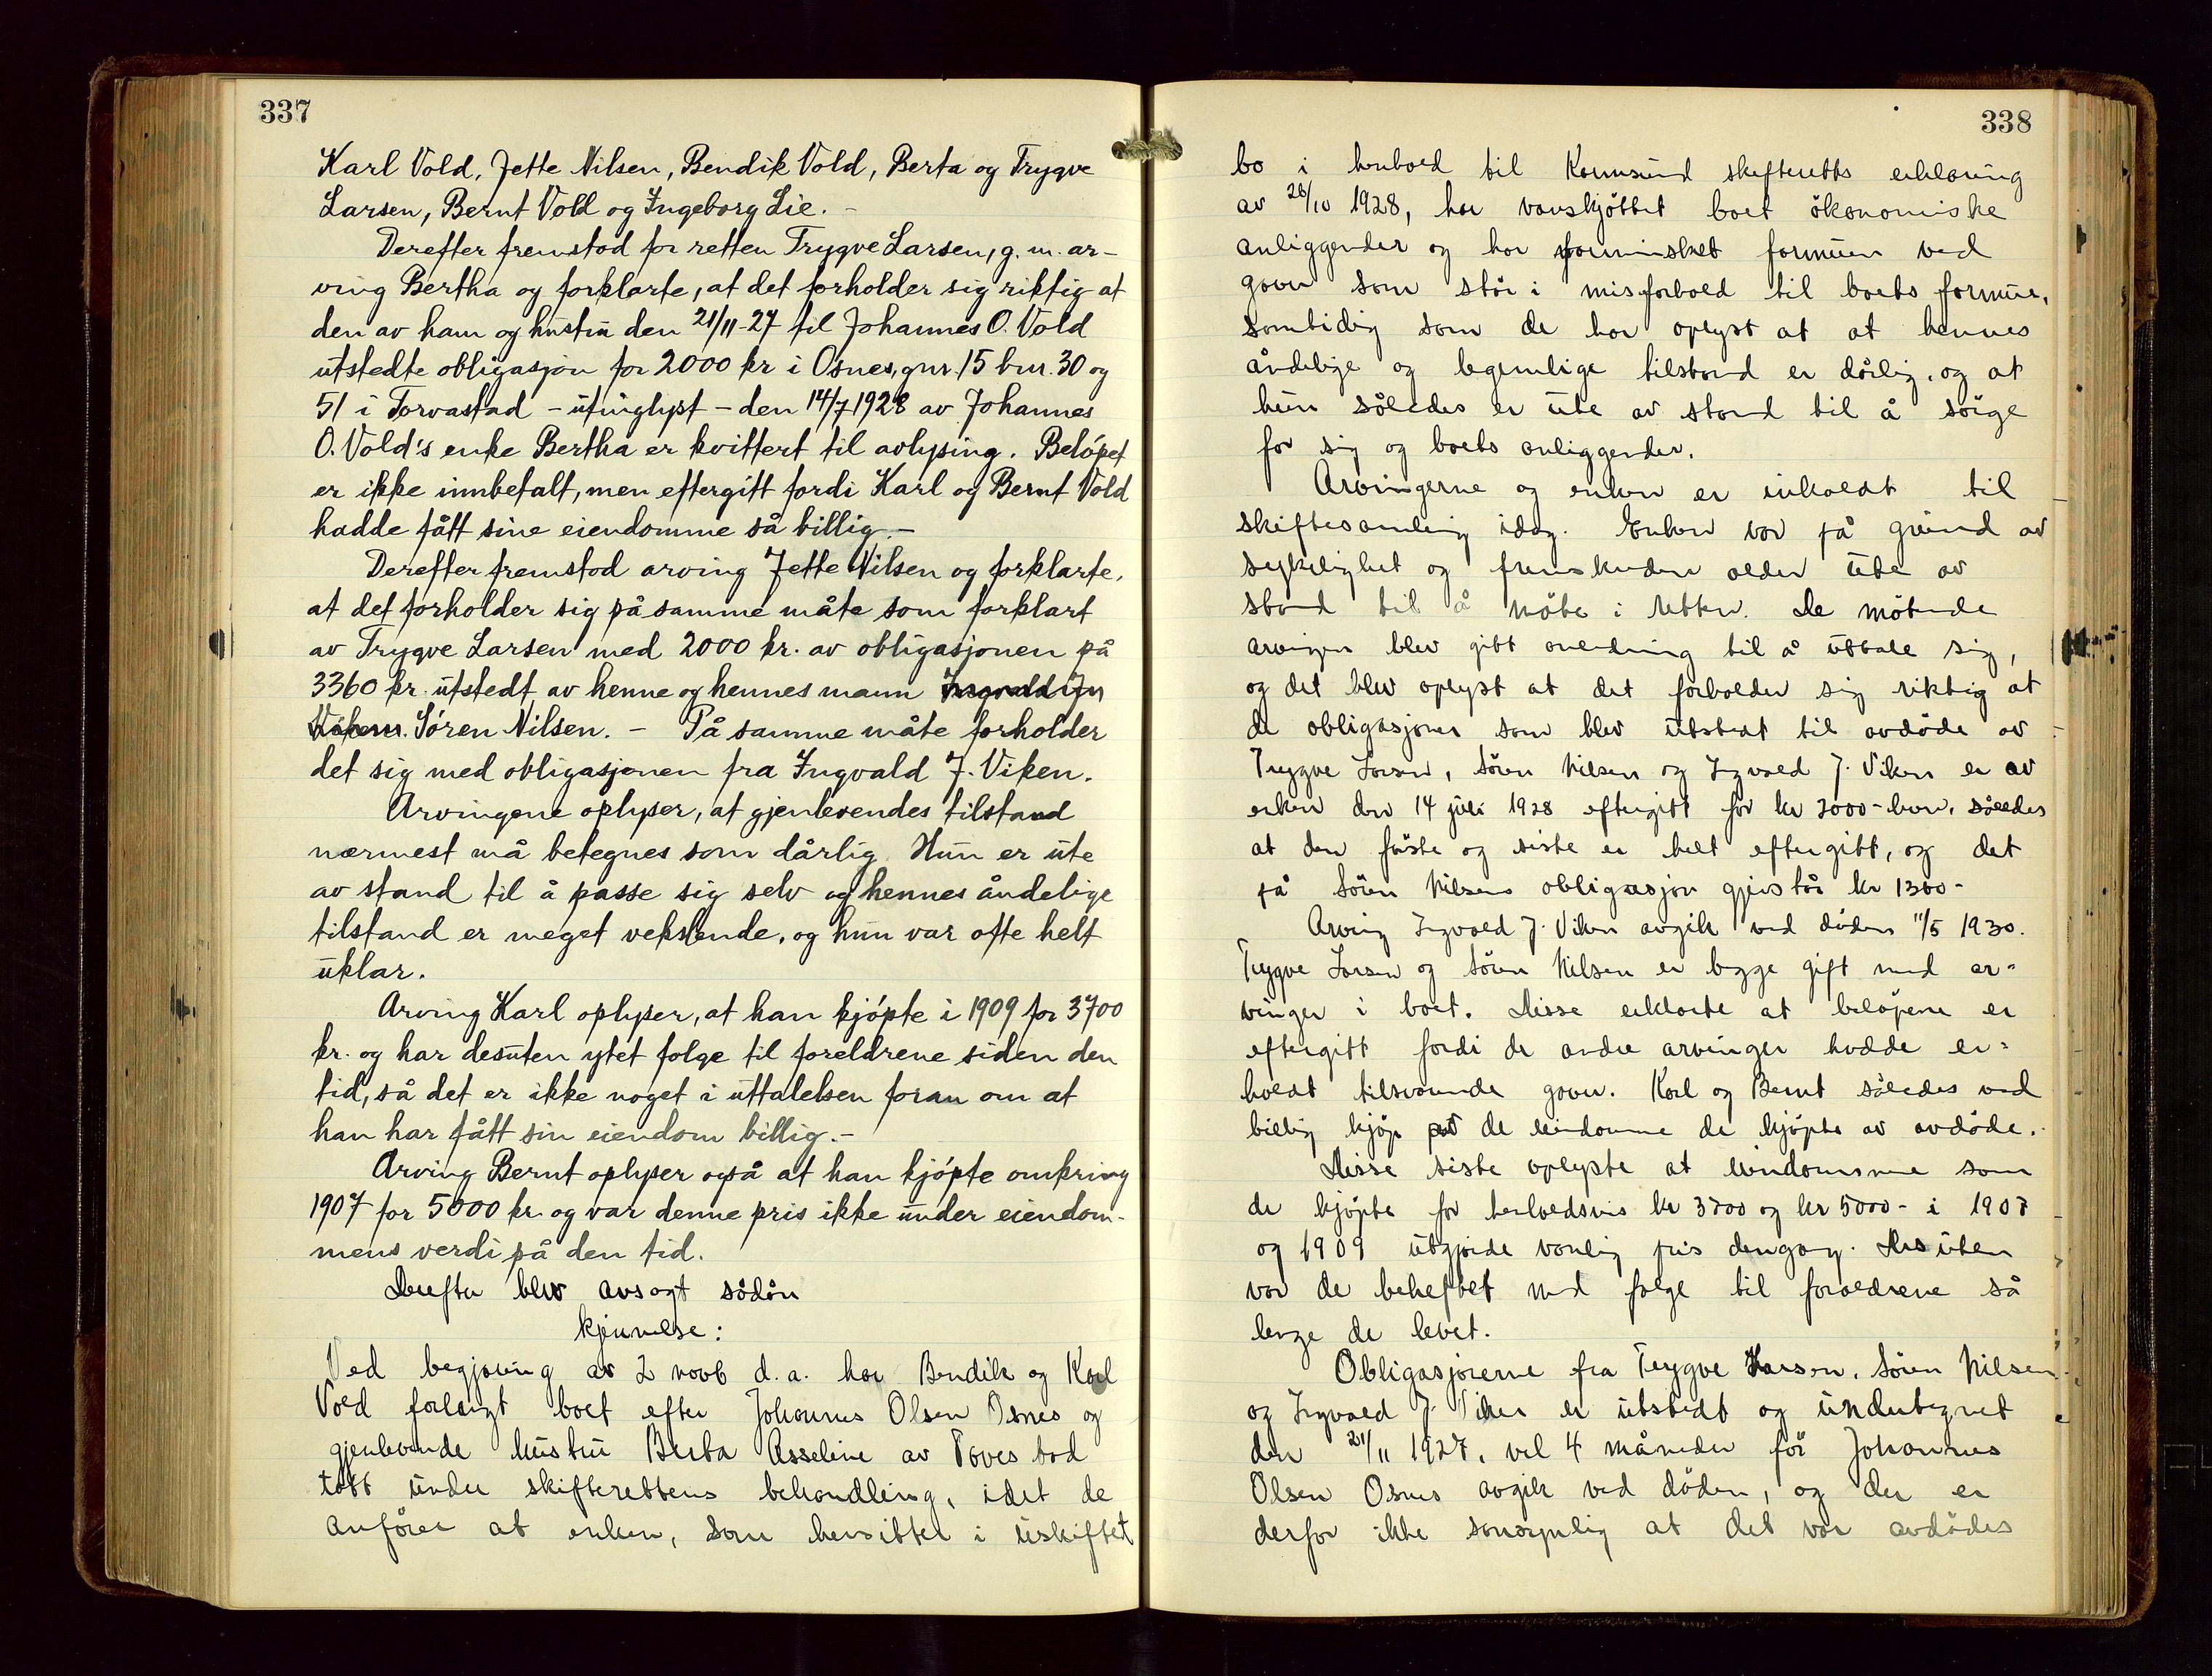 337
Karl Vold, Jette Nilsen, Bendik Vold, Berta og Trygve
Larsen, Bernt Vold og Ingeborg Lie. -
Derefter fremstod for retten Trygve Larsen, g. m. ar-
ving Bertha og forklarte, at det forholder sig riktig at
den av ham og hustru den 21/11-27 til Johannes O. Vold
utstedte obligasjon for 2000 kr i Osnes, gnr. 15 bnr. 30 og
51 i Torvastad - utinglyst - den 14/7 1928 av Johannes
O. Vold's enke Bertha er kvittert til avlysing. Beløpet
er ikke innbetalt, men eftergitt fordi Karl og Bernt Vold
hadde fått sine eiendomme så billig. -
Derefter fremstod arving Jette Nilsen og forklarte,
at det forholder sig på samme måte som forklart
av Trygve Larsen med 2000 kr. av obligasjonen på
3360 kr. utstedt av henne og hennes mann
Søren Nilsen. - På samme måte forholder
det sig med obligasjonen fra Ingvald J. Viken.
Arvingene oplyser, at gjenlevendes tilstand
nærmest må betegnes som dårlig. Hun er ute
av stand til å passe sig selv og hennes åndelige
tilstand er meget vekslende, og hun var ofte helt
uklar.
Arving Karl oplyser, at han kjøpte i 1909 for 3700
kr. og har desuten ytet følge til foreldrene siden den
tid, så det er ikke noget i uttalelsen foran om at
han har fått sin eiendom billig. -
Arving Bernt oplyser også at han kjøpte omkring
1907 for 5000 kr. og var denne pris ikke under eiendom-
mens verdi på den tid.
Derefter blev avsagt sådan
kjennelse:
Ved begjæring av 2 novb d.a. har Bendik og Karl
Vold forlangt boet efter Johannes Olsen Osnes og
gjenlevende hustru Berta Asseline av Torvestad
tatt under skifterettens behandling, idet de
anfører at enken, som hensitter i uskiftet
338
bo i henhold til Karmsund skifteretts erklæring
av 26/10 1928, har vanskjøttet boet økonomiske
anliggender og har forminsket formuen ved
gaver som står i misforhold til boets formue,
samtidig som de har oplyst at at hennes
åndelige og legemlige tilstand er dårlig, og at
hun således er ute av stand til å sørge
for sig og boets anliggender.
Arvingerne og enken er inkaldt til
skiftesamling idag. Enken var på grund av
sykelighet og fremskreden alder ute av
stand til å møte i retten. De møtende
arvinger blev gitt anledning til å uttale sig,
og det blev oplyst at det forholder sig riktig at
de obligasjoner som blev utstedt til avdøde av
Trygve Larsen, Søren Nilsen og Ingvald J. Viken er av
enken den 14 juli 1928 eftergitt for kr 2000- hver, således
at den første og siste er helt eftergitt, og det
på Søren Nilsens obligasjon gjenstår kr 1300-
Arving Ingvald J. Viken avgikk ved døden 11/5 1930.
Trygve Larsen og Søren Nilsen er begge gift med ar-
vinger i boet. Disse erklærte at beløpene er
eftergitt fordi de andre arvinger hadde er-
holdt tilsvarende gaver. Karl og Bernt således ved
billig kjøp av de eiendomme de kjøpte av avdøde.
Disse siste oplyste at eiendommene som
de kjøpte for henholdsvis kr 3700 og kr 5000- i 1907
og 1909 utgjorde vanlig pris dengang. Desuten
var de beheftet med følge til foreldrene så
lenge de levet.
Obligasjonerne fra Trygve Larsen, Søren Nilsen
og Ingvald J. Viken er utstedt og undertegnet
den 21/11 1927, vel 4 måneder før Johannes
Olsen Osnes avgikk ved døden, og der er
derfor ikke sansynlig at det var avdødes